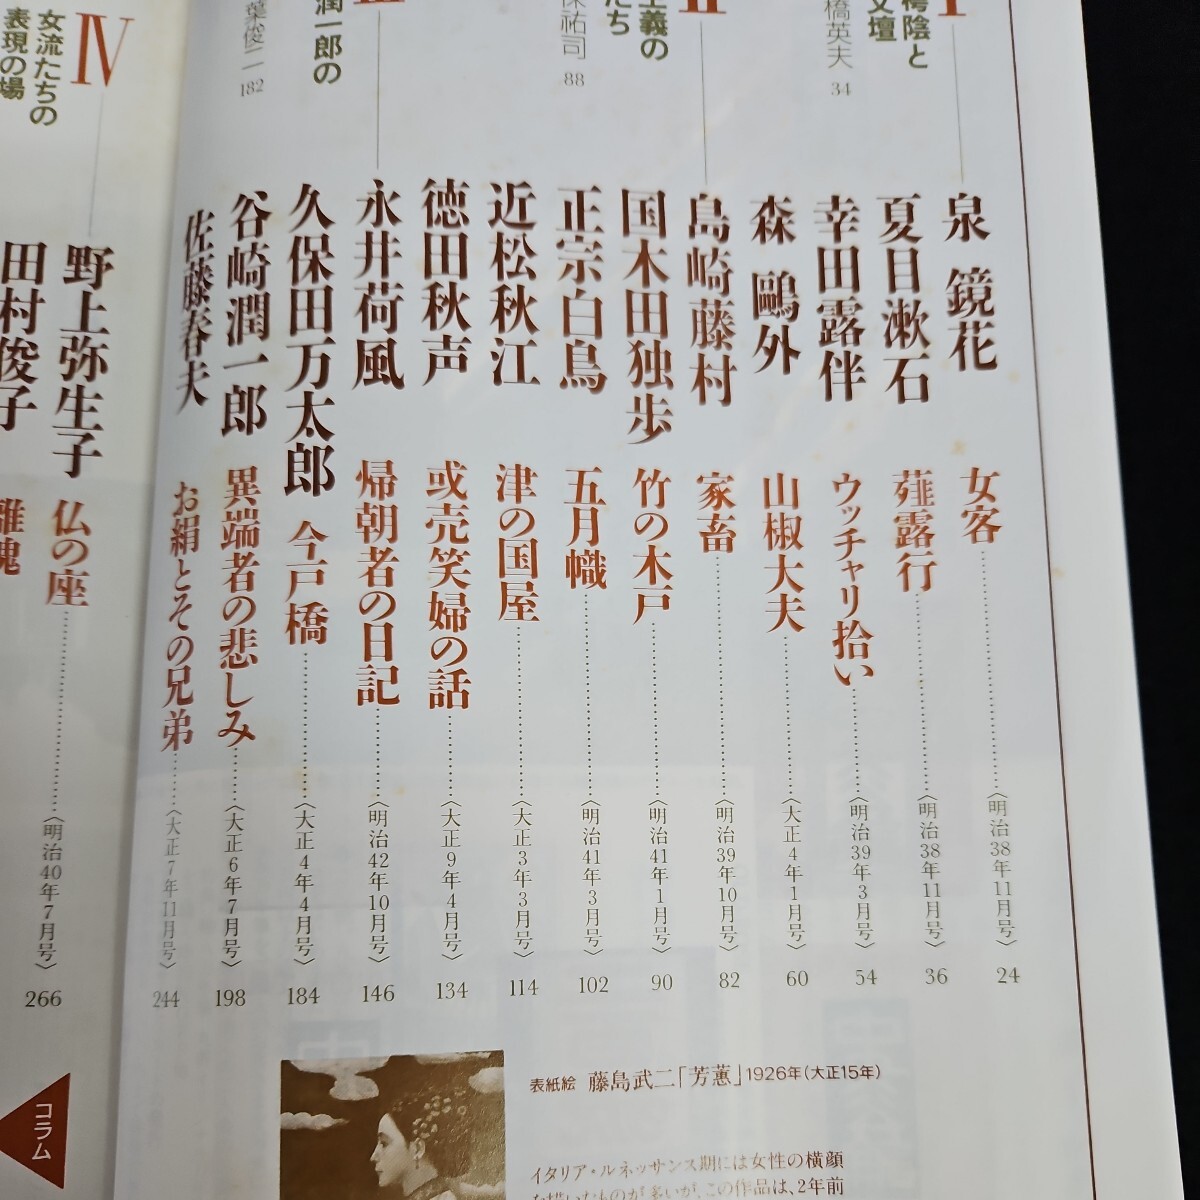 I
樗陰と
文壇
橋英夫
34
泉 鏡花 女客 〈明治38年11月号〉 24
夏目漱石 薤露行 〈明治38年11月号〉 36
幸田露伴 ウッチャリ拾い 〈明治39年3月号〉 54
森 鷗外 山椒大夫 〈大正4年1月号〉 60
II
主義の
たち
祐司
88
島崎藤村 家畜 〈明治39年10月号〉 82
国木田独歩 竹の木戸 〈明治41年1月号〉 90
正宗白鳥 五月幟 〈明治41年3月号〉 102
近松秋江 津の国屋 〈大正3年3月号〉 114
徳田秋声 或売笑婦の話 〈大正9年4月号〉 134
潤一郎の
葉俊二
182
永井荷風 帰朝者の日記 〈明治42年10月号〉 146
久保田万太郎 今戸橋 〈大正4年4月号〉 184
谷崎潤一郎 異端者の悲しみ 〈大正6年7月号〉 198
佐藤春夫 お絹とその兄弟 〈大正7年11月号〉 244
IV
女流たちの
表現の場
野上弥生子 仏の座 〈明治40年7月号〉 266
田村俊子 離魂
コラム
表紙絵 藤島武二「芳蕙」1926年(大正15年)
イタリア・ルネッサンス期には女性の横顔
を描いたものが多いが、この作品は、2年前